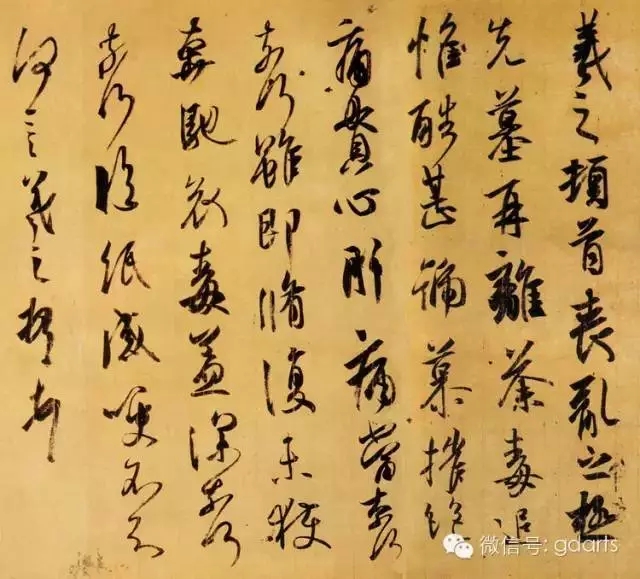 羲之頓首喪亂之極
先墓再離荼毒追
惟酷甚號慕摧絕
痛貫心肝痛當奈何
奈何雖即脩復未獲
奔馳哀毒益深奈何
奈何臨紙感哽不知
何言羲之頓首頓首
微信号: gdarts